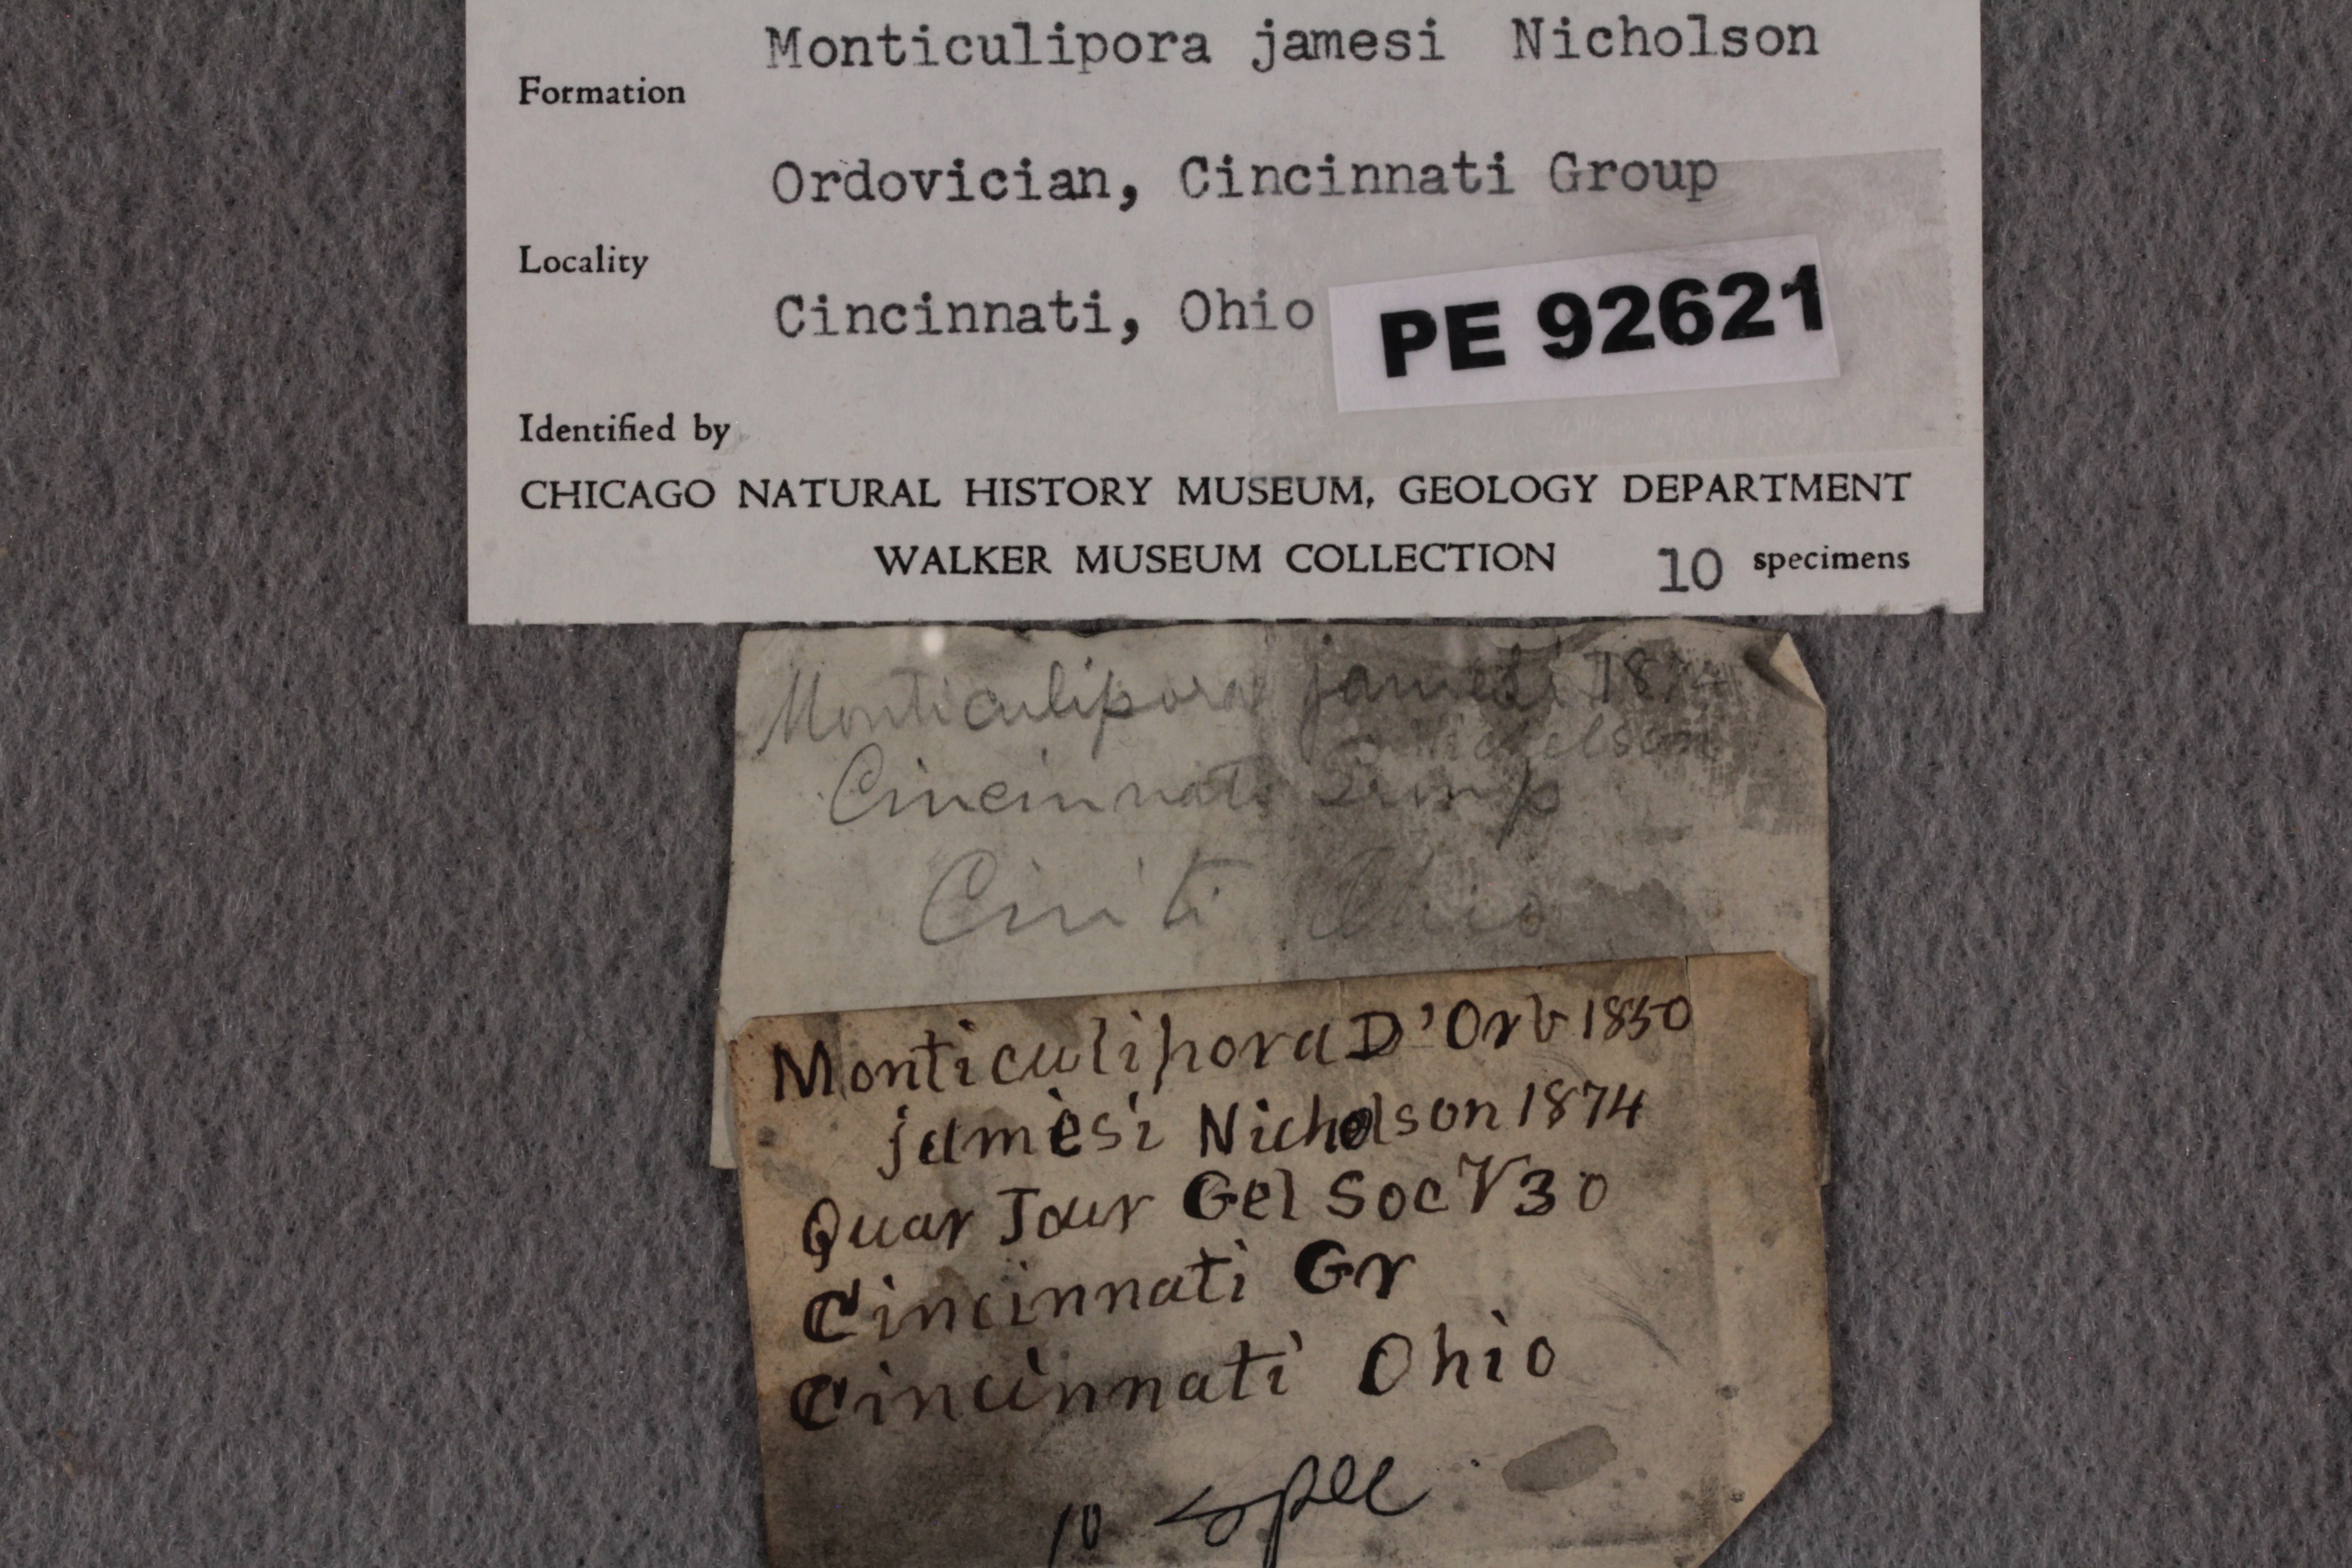 Monticulipora jamesi Nicholson
Formation
Ordovician, Cincinnati Group
Locality
Cincinnati, Ohio
PE 92621
Identified by
CHICAGO NATURAL HISTORY MUSEUM, GEOLOGY DEPARTMENT
WALKER MUSEUM COLLECTION 10 specimens
Monticulipora jamesi 1874
Cincinnati
Cin ti Ohio
Monticulipora D'Orb 1850
jamesi Nicholson 1874
Quar Jour Gel Soc V30
Cincinnati Gr
Cincinnati Ohio
10 spec